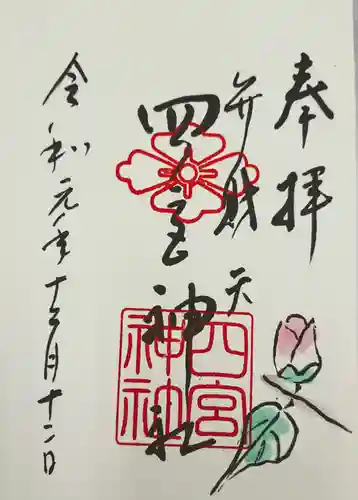 奉拝
弁財天
四宮神社
四宮神社
令和元年十二月十二日